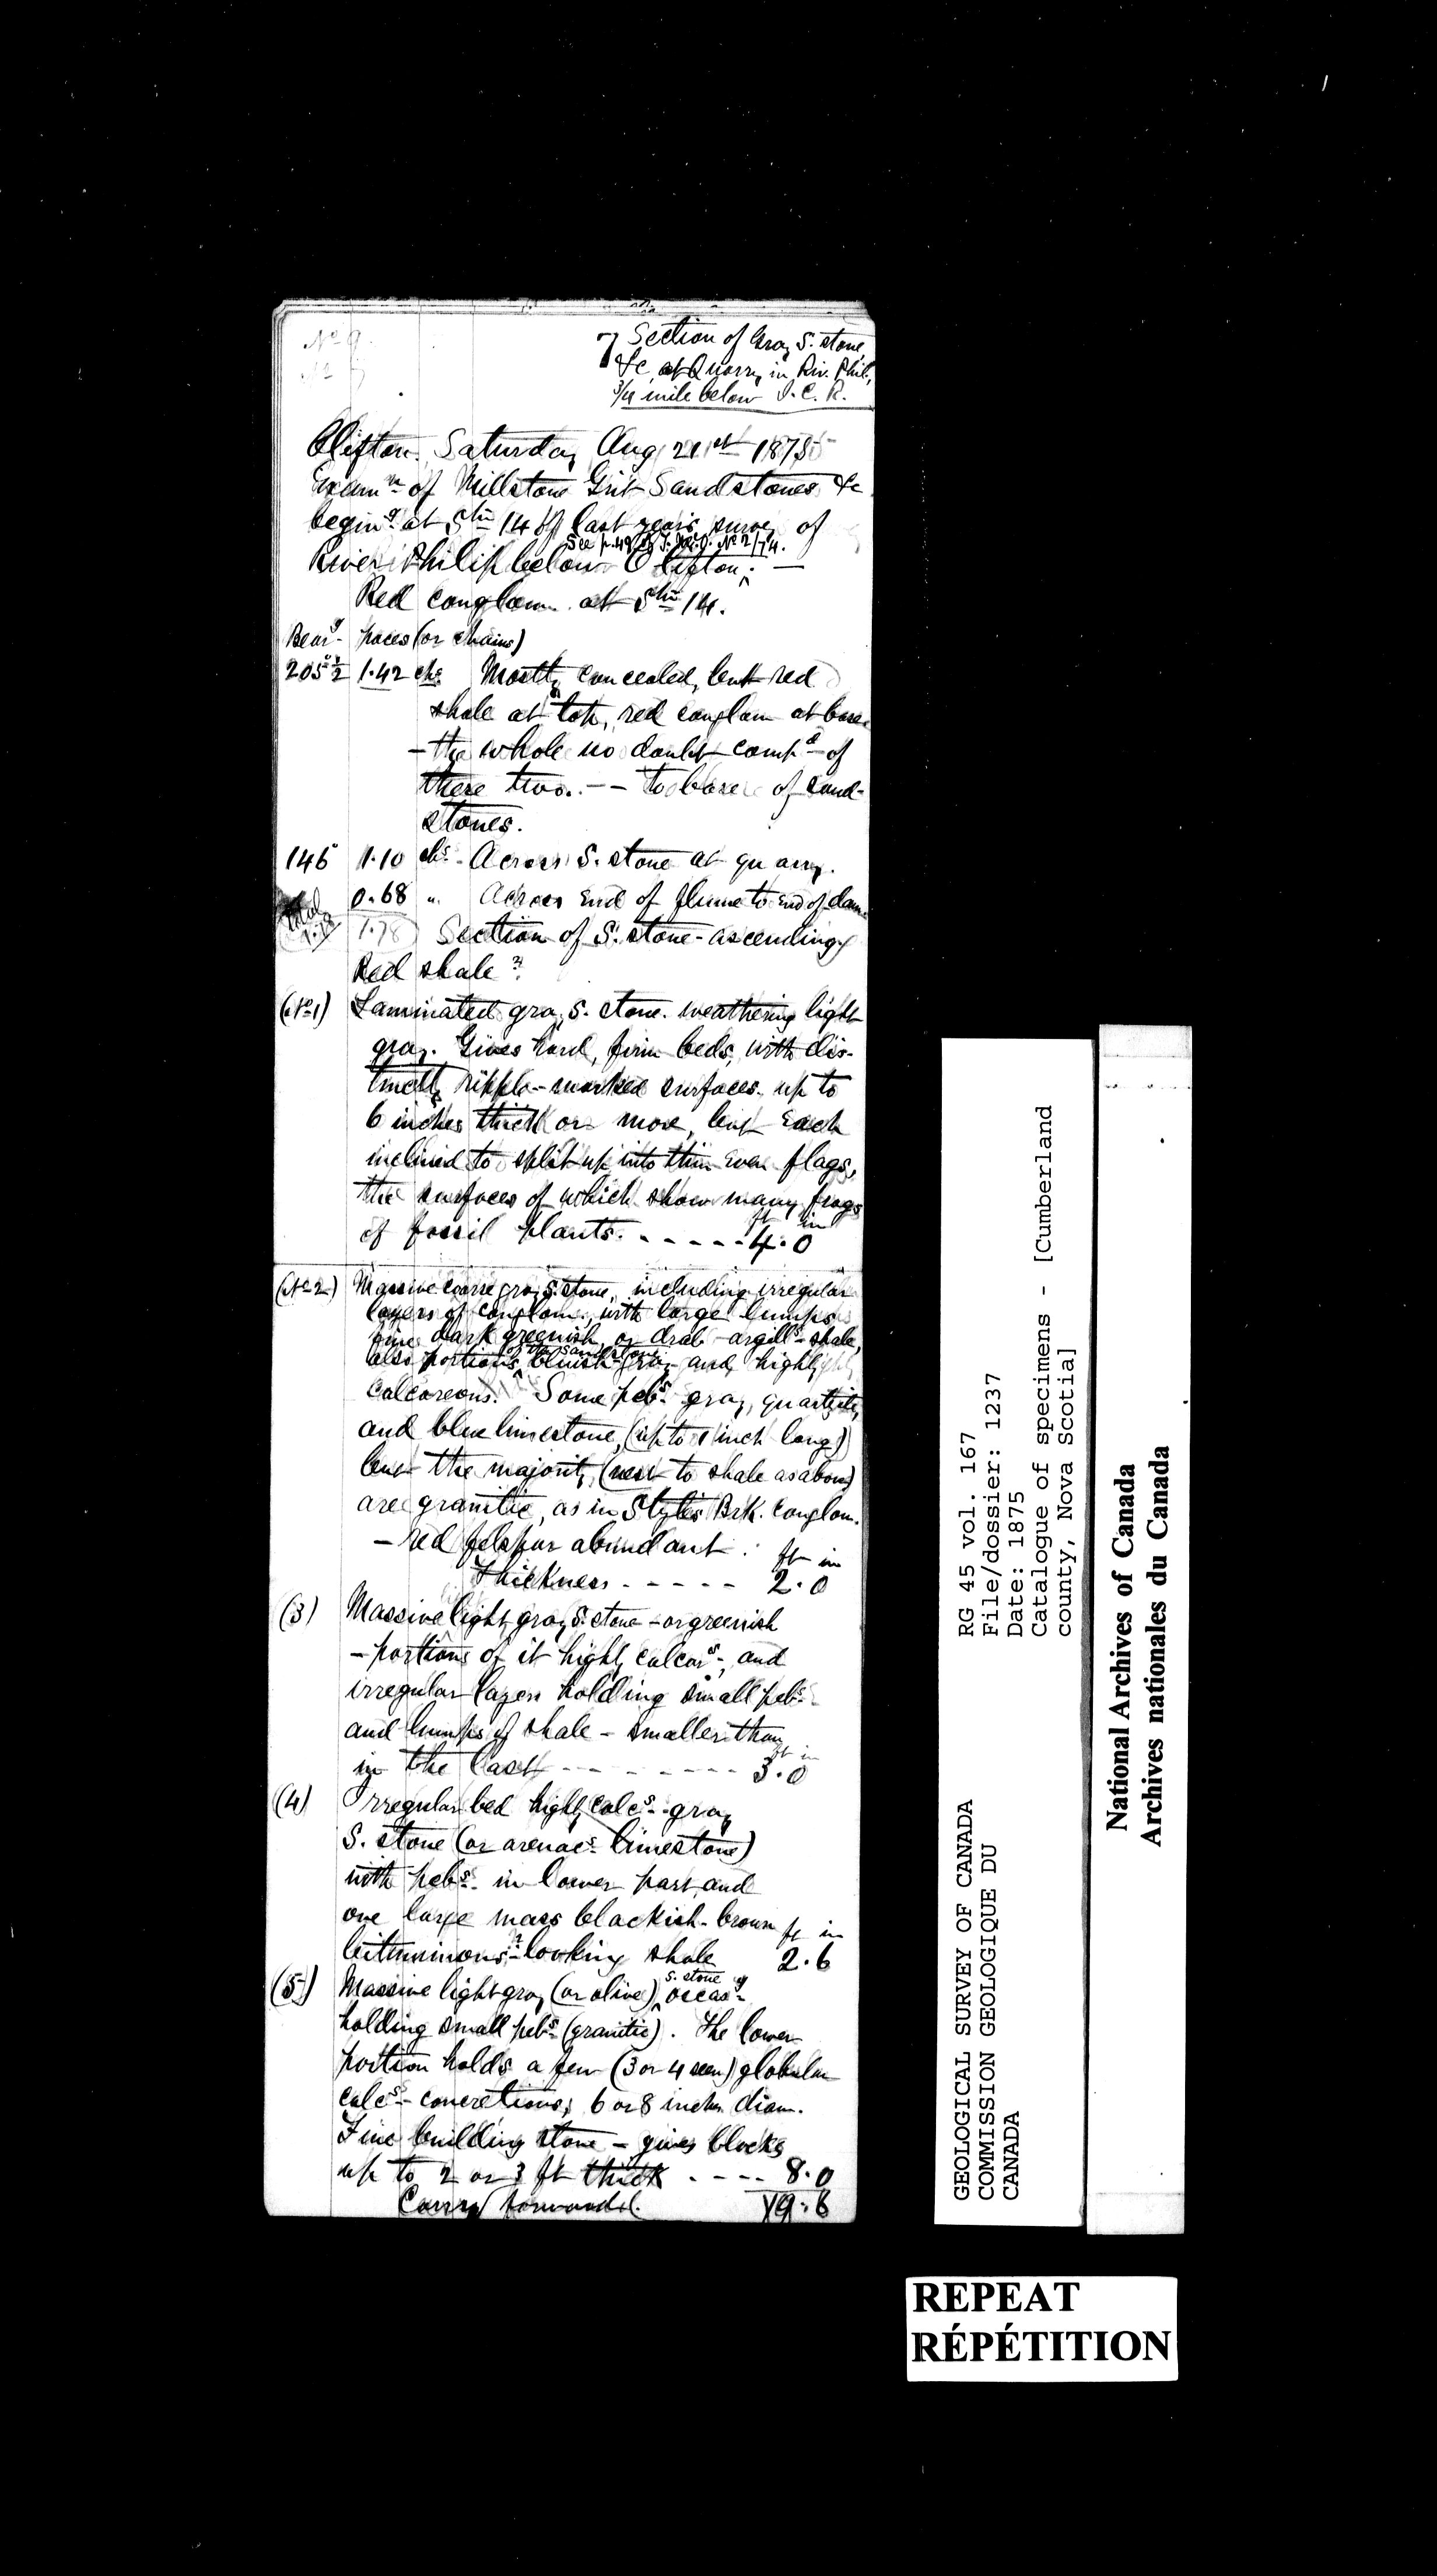 No 9.
7 Section of Gray S. stone,
&c, at Quarry in Riv. Phil.,
3/4 mile below I. C. R.
Clifton, Saturday Aug 21st 1875
Examn of Millstone Grit Sandstones &c
beging at Stn 14 of last year's survey of
See p. 49 No 2/74.
River Philip below Clifton; —
Red conglom. at Stn 14.
Bearg - paces (or chains)
205°½ 1.42 chs Mostly concealed, but red
shale at top, red conglom at base
- the whole no doubt compd of
these two. - - to base of sand-
stones.
146 1.10 chs - Across S. stone at quarry.
0.68 " Across End of flume to End of dam
total 1.78 1.78 Section of S. stone - ascending
Red shale?
(No 1) Laminated gray S. stone. weathering light
gray. Gives hard, firm beds, with dis-
tinctly ripple-marked surfaces. up to
6 inches thick or more, but Each
inclined to split up into thin Even flags,
the surfaces of which show many frags
ft in
of fossil plants. - - - - - 4.0
(No 2) Massive coarse gray S. stone, including irregular
layers of conglom., with large lumps
fine dark greenish or drab - argills - shale,
of the sandstone
also portions bluish-gray and highly
calcareous. Some pebs. gray, quartzite,
and blue limestone, (up to 1 inch long)
but the majority (next to shale as above)
are granitic, as in Styles Brk. conglom.
- red felspar abundant. ft in
Thickness - - - - - 2.0
(3) Massive light gray S. stone - or greenish
- portions of it highly calcars -, and
irregular layers holding small pebs -
and lumps of shale - smaller than
ft in
in the last - - - - - - - - 3.0
(4) Irregular bed highly calcs - gray
S. stone (or arenacs - limestone)
with pebs - in lower part, and
one large mass blackish-brown ft in
bituminous?-looking shale 2.6
s. stone
(5) Massive light gray (or olive) occasy -
holding small pebs (granitic). The lower
portion holds a few (3 or 4 seen) globular
calcs - concretions, 6 or 8 inches diam.
Fine building stone - gives blocks
up to 2 or 3 ft thick - - - - 8.0
Carry forward. 19.6
GEOLOGICAL SURVEY OF CANADA
COMMISSION GEOLOGIQUE DU
CANADA
RG 45 vol. 167
File/dossier: 1237
Date: 1875
Catalogue of specimens - [Cumberland
county, Nova Scotia]
National Archives of Canada
Archives nationales du Canada
REPEAT
RÉPÉTITION